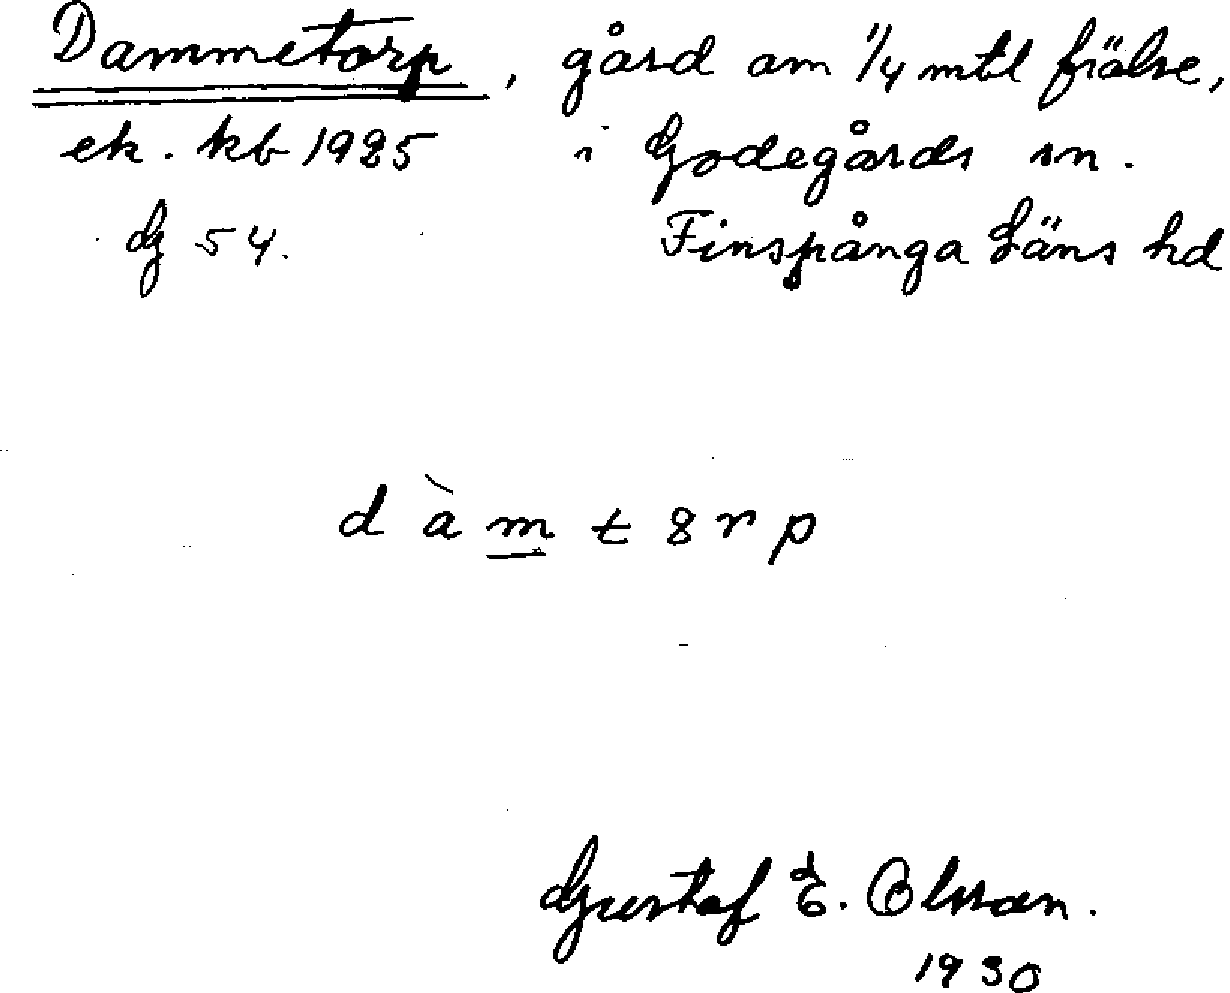 Dammetorp, gård om 1/4 mtl frälse,
ek. kb 1925 i Godegårds sn.
dg 54. Finspånga Läns hd
d à m t 8 r p
Gustaf E. Olsson.
1930